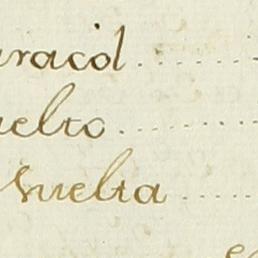 aracol
uelto
Suelta